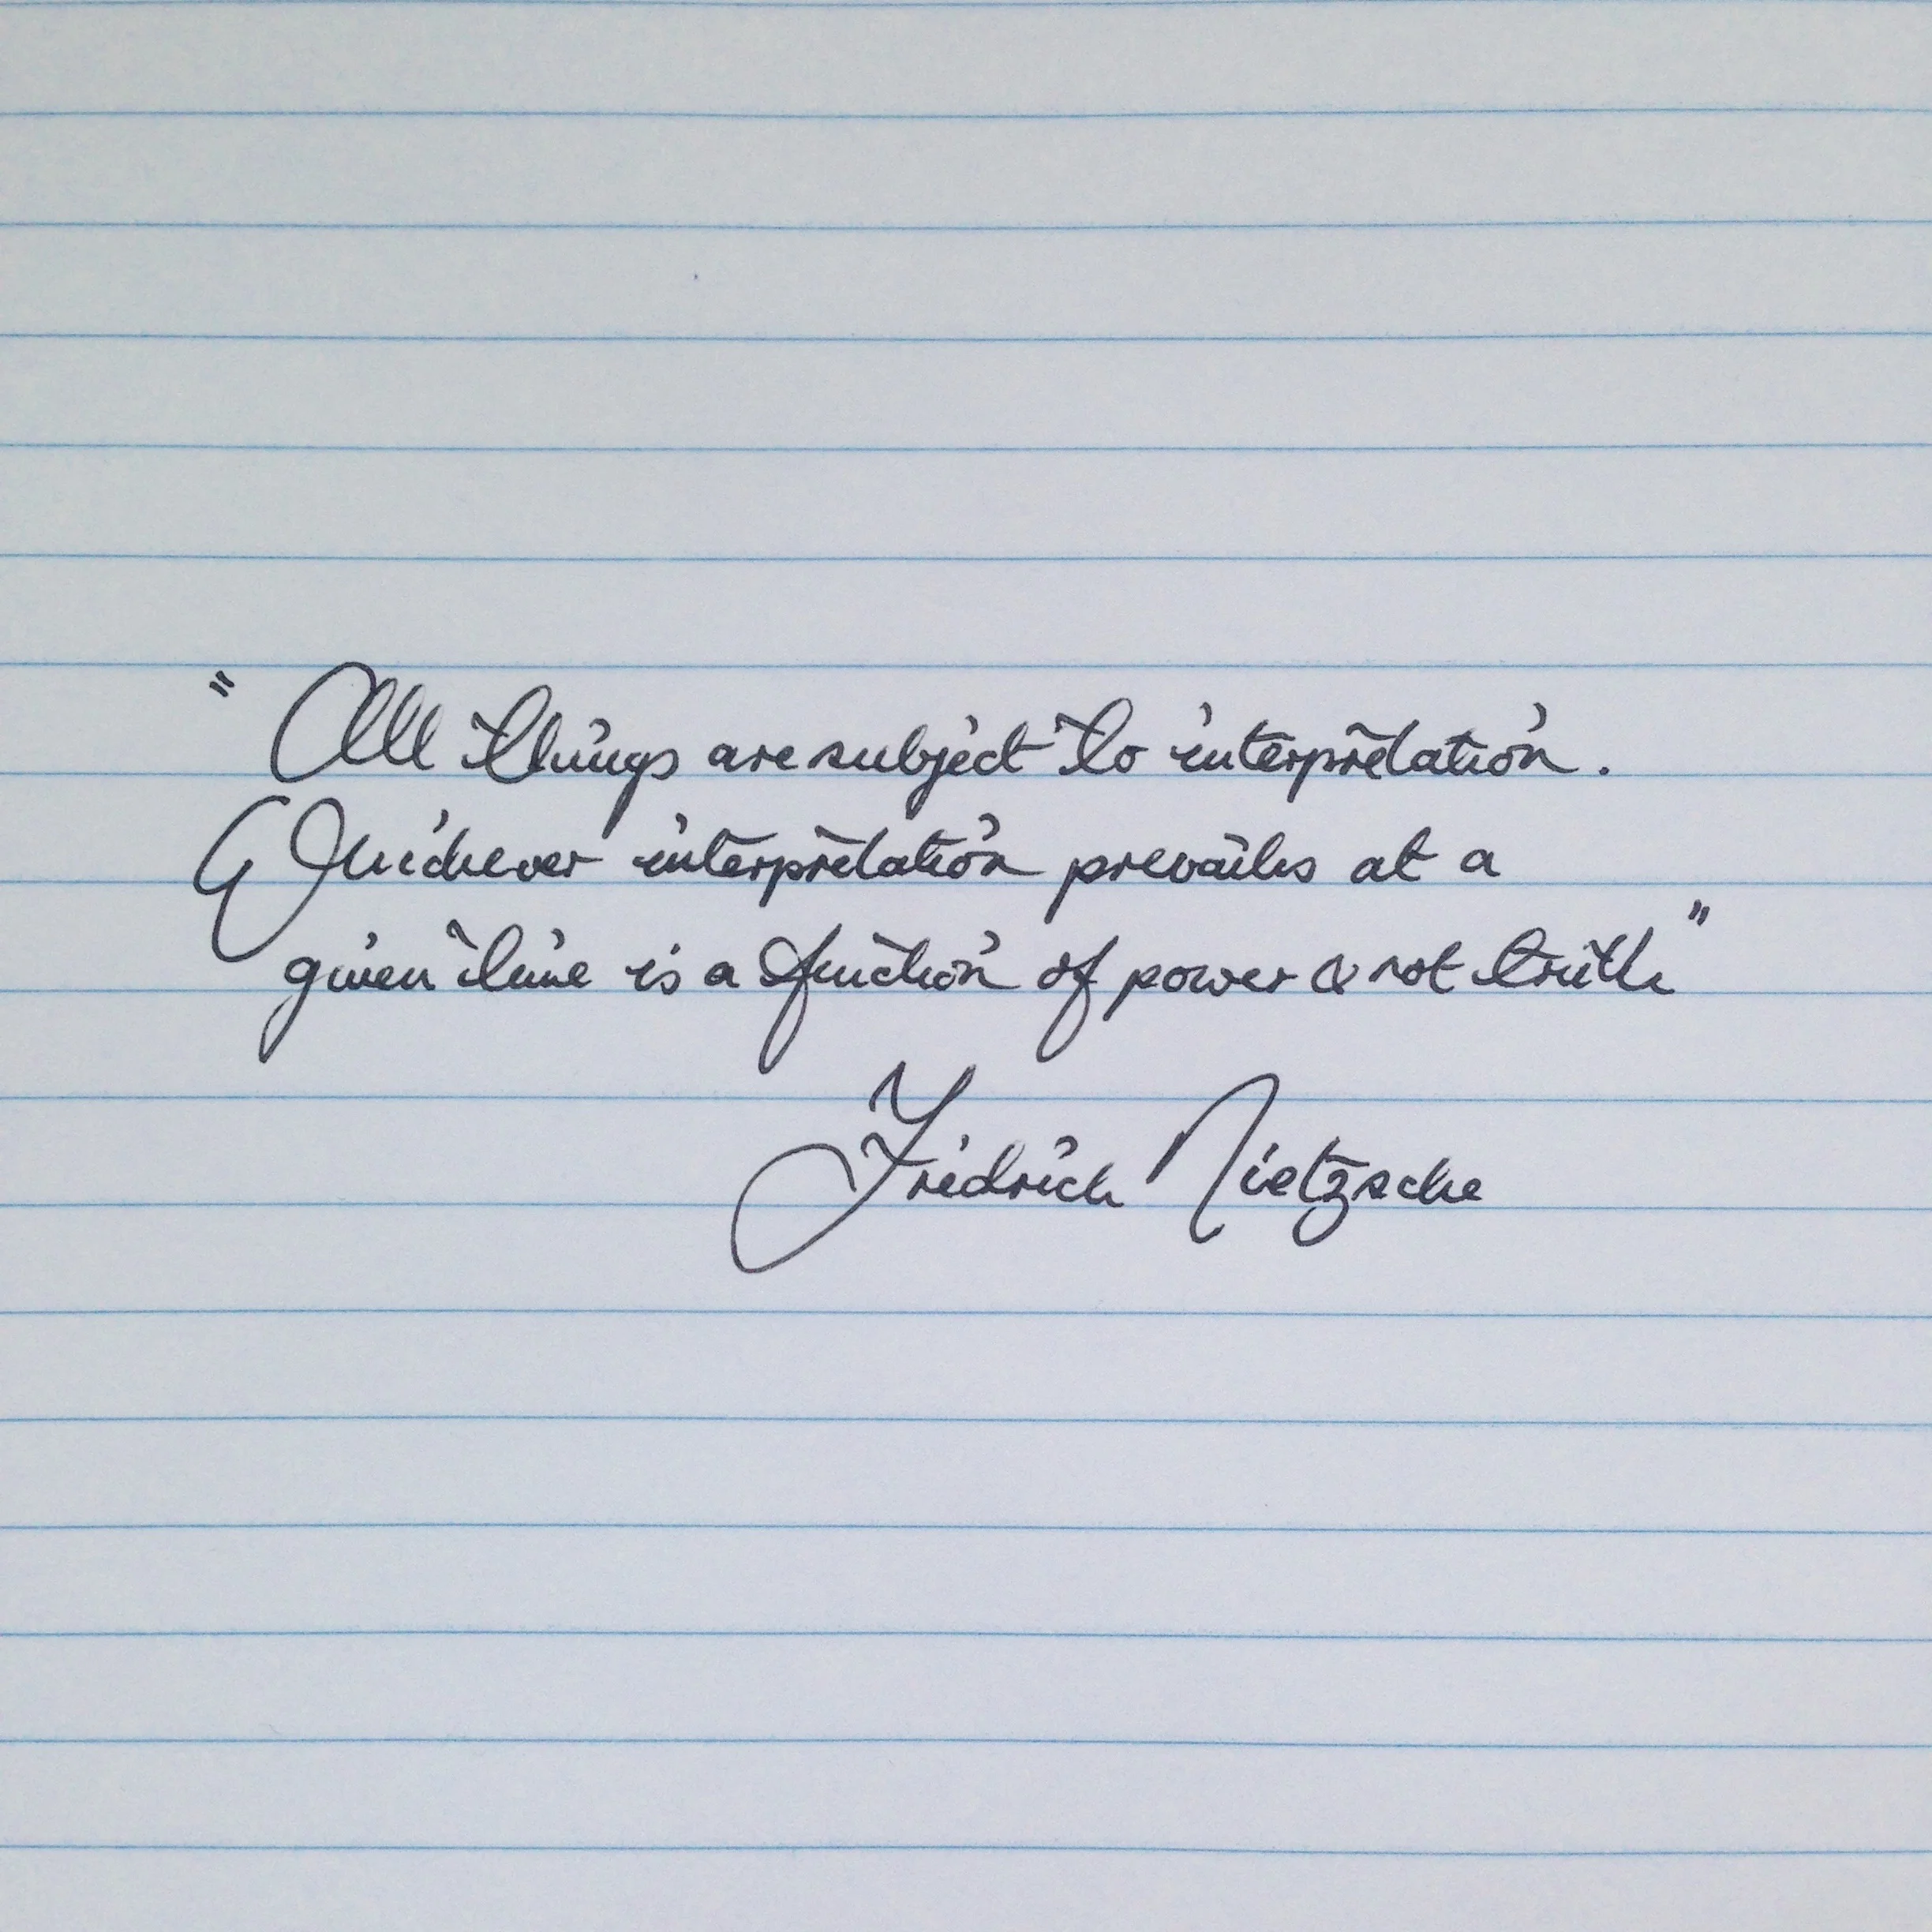 "All things are subject to interpretation.
Whichever interpretation prevails at a
given time is a function of power & not truth"
Fridrich Nietzsche